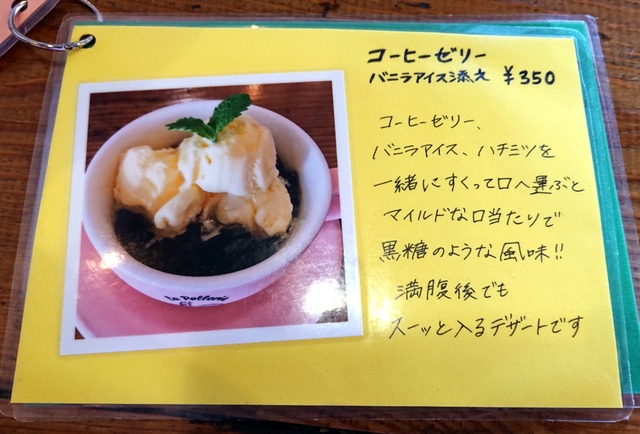 コーヒーゼリー
バニラアイス添え ¥350
コーヒーゼリー、
バニラアイス、ハチミツを
一緒にすくって口へ運ぶと
マイルドな口当たりで
黒糖のような風味!!
満腹後でも
スーッと入るデザートです